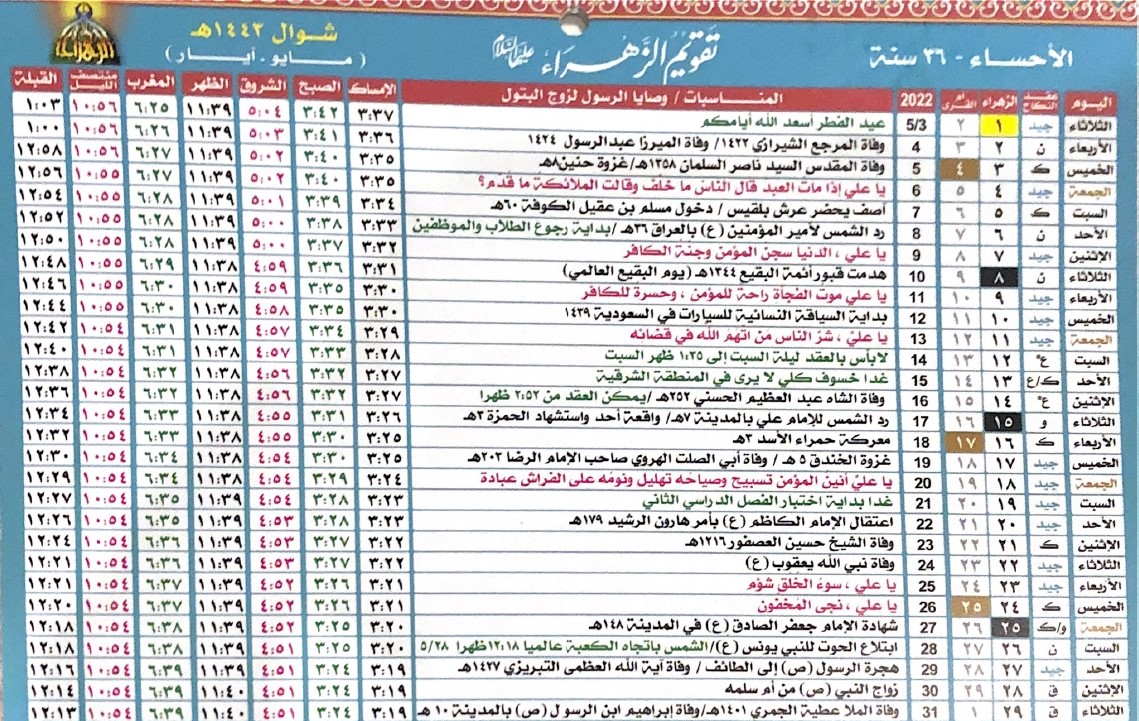 الأحساء - ٣٦ سنة
تقويم الزهراء عليها السلام
شوال ١٤٤٣هـ
(مايو - أيار)
الزهراء
اليوم عقد النكاح الزهراء أم القرى 2022 المناسبات / وصايا الرسول لزوج البتول الإمساك الصبح الشروق الظهر المغرب منتصف الليل القبلة
الثلاثاء جيد ١ ٢ 5/3 عيد الفطر أسعد الله أيامكم ٣:٣٧ ٣:٤٢ ٥:٠٤ ١١:٣٩ ٦:٢٥ ١٠:٥٦ ١:٠٣
الأربعاء ن ٢ ٣ 4 وفاة المرجع الشيرازي ١٤٢٢/ وفاة الميرزا عبدالرسول ١٤٢٤ ٣:٣٦ ٣:٤١ ٥:٠٣ ١١:٣٩ ٦:٢٦ ١٠:٥٦ ١:٠٠
الخميس ك ٣ ٤ 5 وفاة المقدس السيد ناصر السلمان ١٣٥٨هـ/غزوة حنين٨هـ ٣:٣٥ ٣:٤٠ ٥:٠٢ ١١:٣٩ ٦:٢٧ ١٠:٥٦ ١٢:٥٨
الجمعة جيد ٤ ٥ 6 يا علي إذا مات العبد قال الناس ما خلف وقالت الملائكة ما قدم؟ ٣:٣٥ ٣:٤٠ ٥:٠٢ ١١:٣٩ ٦:٢٧ ١٠:٥٥ ١٢:٥٦
السبت ك ٥ ٦ 7 آصف يحضر عرش بلقيس / دخول مسلم بن عقيل الكوفة ٦٠هـ ٣:٣٤ ٣:٣٩ ٥:٠١ ١١:٣٩ ٦:٢٨ ١٠:٥٥ ١٢:٥٤
الأحد ن ٦ ٧ 8 رد الشمس لأمير المؤمنين (ع) بالعراق ٣٦هـ /بداية رجوع الطلاب والموظفين ٣:٣٣ ٣:٣٨ ٥:٠٠ ١١:٣٩ ٦:٢٨ ١٠:٥٥ ١٢:٥٢
الإثنين جيد ٧ ٨ 9 يا علي ، الدنيا سجن المؤمن وجنة الكافر ٣:٣٢ ٣:٣٧ ٥:٠٠ ١١:٣٩ ٦:٢٨ ١٠:٥٥ ١٢:٥٠
الثلاثاء ن ٨ ٩ 10 هدمت قبور أئمة البقيع ١٣٤٤هـ (يوم البقيع العالمي) ٣:٣١ ٣:٣٦ ٤:٥٩ ١١:٣٨ ٦:٢٩ ١٠:٥٥ ١٢:٤٨
الأربعاء جيد ٩ ١٠ 11 يا علي موت الفجأة راحة للمؤمن ، وحسرة للكافر ٣:٣٠ ٣:٣٥ ٤:٥٩ ١١:٣٨ ٦:٣٠ ١٠:٥٥ ١٢:٤٦
الخميس جيد ١٠ ١١ 12 بداية السياقة النسائية للسيارات في السعودية ١٤٣٩ ٣:٣٠ ٣:٣٥ ٤:٥٨ ١١:٣٨ ٦:٣٠ ١٠:٥٥ ١٢:٤٤
الجمعة جيد ١١ ١٢ 13 يا علي ، شر الناس من اتهم الله في قضائه ٣:٢٩ ٣:٣٤ ٤:٥٧ ١١:٣٨ ٦:٣١ ١٠:٥٤ ١٢:٤٢
السبت ع° ١٢ ١٣ 14 لابأس بالعقد ليلة السبت إلى ١:٢٥ ظهر السبت ٣:٢٨ ٣:٣٣ ٤:٥٧ ١١:٣٨ ٦:٣١ ١٠:٥٤ ١٢:٤٠
الأحد ك/ع ١٣ ١٤ 15 غدا خسوف كلي لا يرى في المنطقة الشرقية ٣:٢٧ ٣:٣٢ ٤:٥٦ ١١:٣٨ ٦:٣٢ ١٠:٥٤ ١٢:٣٨
الإثنين ع° ١٤ ١٥ 16 وفاة الشاه عبد العظيم الحسني ٢٥٢هـ /يمكن العقد من ٢:٥٢ ظهرا ٣:٢٧ ٣:٣٢ ٤:٥٦ ١١:٣٨ ٦:٣٢ ١٠:٥٤ ١٢:٣٦
الثلاثاء و ١٥ ١٦ 17 رد الشمس للإمام علي بالمدينة ٧هـ/ واقعة أحد واستشهاد الحمزة ٣هـ ٣:٢٦ ٣:٣١ ٤:٥٥ ١١:٣٨ ٦:٣٣ ١٠:٥٤ ١٢:٣٤
الأربعاء ك ١٦ ١٧ 18 معركة حمراء الأسد ٣هـ ٣:٢٥ ٣:٣٠ ٤:٥٥ ١١:٣٨ ٦:٣٣ ١٠:٥٤ ١٢:٣٢
الخميس جيد ١٧ ١٨ 19 غزوة الخندق ٥ هـ / وفاة أبي الصلت الهروي صاحب الإمام الرضا ٢٠٣هـ ٣:٢٥ ٣:٣٠ ٤:٥٤ ١١:٣٨ ٦:٣٤ ١٠:٥٤ ١٢:٣٠
الجمعة جيد ١٨ ١٩ 20 يا علي أنين المؤمن تسبيح وصياحه تهليل ونومه على الفراش عبادة ٣:٢٤ ٣:٢٩ ٤:٥٤ ١١:٣٨ ٦:٣٤ ١٠:٥٤ ١٢:٢٩
السبت جيد ١٩ ٢٠ 21 غدا بداية اختبار الفصل الدراسي الثاني ٣:٢٣ ٣:٢٨ ٤:٥٣ ١١:٣٩ ٦:٣٥ ١٠:٥٤ ١٢:٢٧
الأحد جيد ٢٠ ٢١ 22 اعتقال الإمام الكاظم (ع) بأمر هارون الرشيد ١٧٩هـ ٣:٢٣ ٣:٢٨ ٤:٥٣ ١١:٣٩ ٦:٣٥ ١٠:٥٤ ١٢:٢٦
الإثنين ك ٢١ ٢٢ 23 وفاة الشيخ حسين العصفور ١٢١٦هـ ٣:٢٢ ٣:٢٧ ٤:٥٣ ١١:٣٩ ٦:٣٦ ١٠:٥٤ ١٢:٢٤
الثلاثاء جيد ٢٢ ٢٣ 24 وفاة نبي الله يعقوب (ع) ٣:٢٢ ٣:٢٧ ٤:٥٣ ١١:٣٩ ٦:٣٦ ١٠:٥٤ ١٢:٢١
الأربعاء جيد ٢٣ ٢٤ 25 يا علي ، سوء الخلق شؤم ٣:٢١ ٣:٢٦ ٤:٥٢ ١١:٣٩ ٦:٣٧ ١٠:٥٤ ١٢:٢١
الخميس ك ٢٤ ٢٥ 26 يا علي ، نجى المخفون ٣:٢١ ٣:٢٦ ٤:٥٢ ١١:٣٩ ٦:٣٧ ١٠:٥٤ ١٢:٢٠
الجمعة و/ك ٢٥ ٢٦ 27 شهادة الإمام جعفر الصادق (ع) في المدينة ١٤٨هـ ٣:٢٠ ٣:٢٥ ٤:٥٢ ١١:٣٩ ٦:٣٨ ١٠:٥٤ ١٢:١٨
السبت ن ٢٦ ٢٧ 28 ابتلاع الحوت للنبي يونس (ع)/الشمس باتجاه الكعبة عالميا ١٢:١٨ظهرا ٥/٢٨ ٣:٢٠ ٣:٢٥ ٤:٥١ ١١:٣٩ ٦:٣٨ ١٠:٥٤ ١٢:١٨
الأحد جيد ٢٧ ٢٨ 29 هجرة الرسول (ص) إلى الطائف / وفاة آية الله العظمى التبريزي ١٤٢٧هـ ٣:١٩ ٣:٢٤ ٤:٥١ ١١:٣٩ ٦:٣٩ ١٠:٥٤ ١٢:١٦
الإثنين ق ٢٨ ٢٩ 30 زواج النبي (ص) من أم سلمه ٣:١٩ ٣:٢٤ ٤:٥١ ١١:٤٠ ٦:٣٩ ١٠:٥٤ ١٢:١٤
الثلاثاء ق ٢٩ ١ 31 وفاة الملا عطية الجمري ١٤٠١هـ/وفاة إبراهيم ابن الرسول (ص) بالمدينة ١٠ هـ ٣:١٩ ٣:٢٤ ٤:٥١ ١١:٤٠ ٦:٣٩ ١٠:٥٤ ١٢:١٣